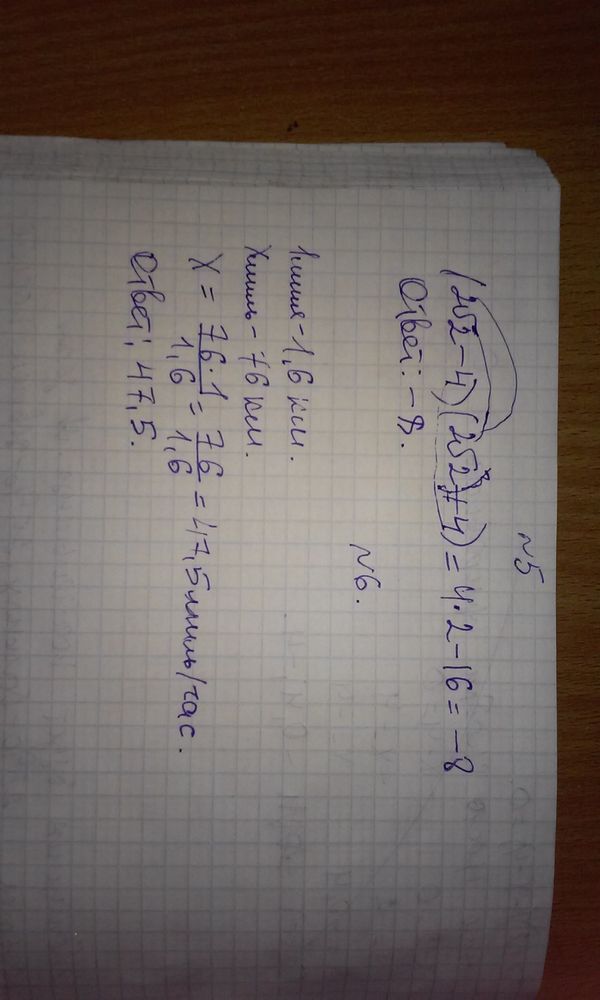 N5
(2√2-4)(2√2+4)=4·2-16=-8
Ответ: -8.
N6.
1миля-1,6 км.
Xмиль-76 км.
X = 76·1/1,6 = 76/1,6 = 47,5миль/час.
Ответ: 47,5.